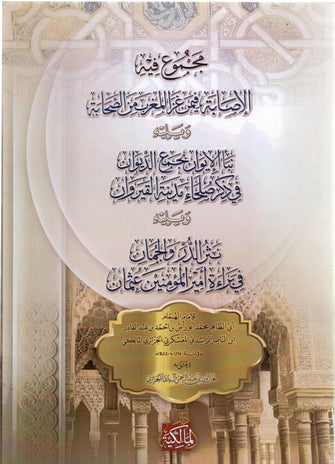 مجموع فيه
الإصابة فيمن غزا المغرب من الصحابة
ويليه
نبأ الإيوان بجمع الديوان
في ذكر صلحاء مدينة القيروان
ويليه
نثر الدر والجمان
في براءة أمير المؤمنين عثمان
للإمام الهمام
أبي الطاهر محمد أبو راس بن أحمد بن عبد القادر
ابن الناصر الراشدي المعسكري الجزائري المالكي
المالكية